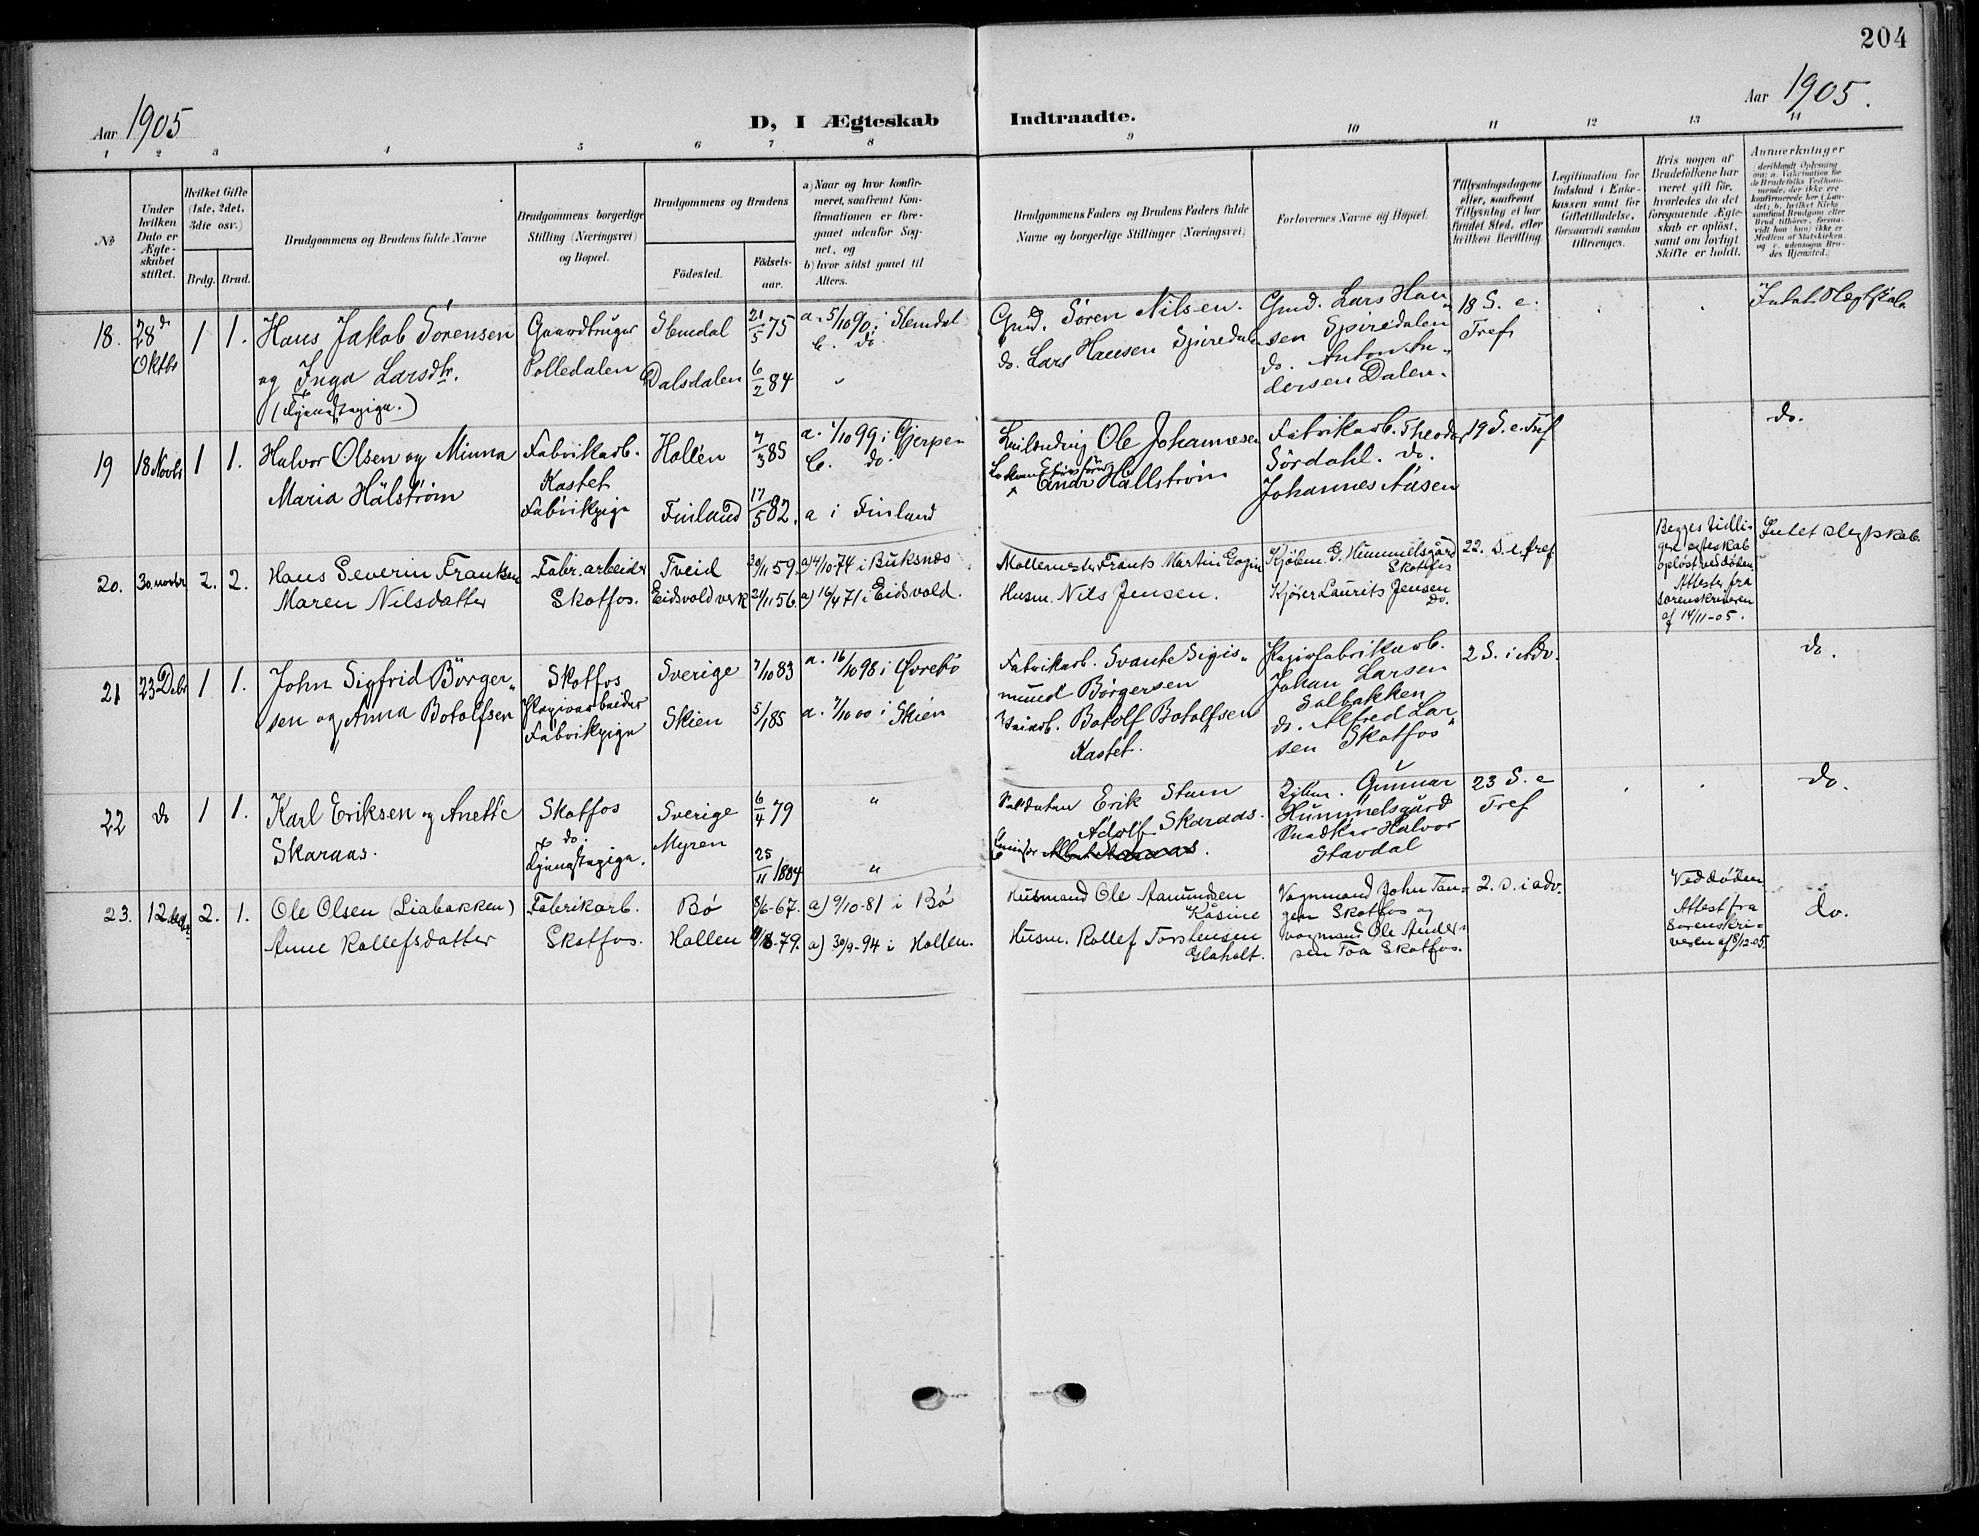 204
Aar 1905
D, I Ægteskab Indtraadte.
Aar 1905.
1 2 3 4 5 6 7 8 9 10 11 12 13 14
No
Under hvilken Dato er Ægteskabet stiftet.
Hvilket Gifte (1ste, 2det, 3die osv.)
Brdg. Brud.
Brudgommens og Brudens fulde Navne
Brudgommens borgerlige Stilling (Næringsvei) og Bopæl.
Brudgommens og Brudens
Födested.
Födsels-aar.
a) Naar og hvor konfirmeret, saafremt Konfirmationen er foregaaet udenfor Sognet, og
b) hvor sidst gaaet til Alters.
Brudgommens Faders og Brudens Faders fulde Navne og borgerlige Stillinger (Næringsvei)
Forlovernes Navne og Bopæl.
Tillysningsdagene eller, saafremt Tillysning ei har fundet Sted, efter hvilken Bevilling
Legitimation for Indskud i Enkekassen samt for Giftetilladelse, forsaavidt saadan tiltrænges.
Hvis nogen af Brudefolkene har været gift för, hvorledes da det foregaaende Ægteskab er oplöst, samt om lovligt Skifte er holdt.
Anmærkninger
18. 28d Oktbr 1 1. Hans Jakob Sörensen og Inga Larsdtr.
Gaardbruger Polledalen
Slemdal 21/5 75 a. 5/10 90 i Slemdal b. do.
Dalsdalen 6/2 84 "
Gmd. Sören Nilsen.
do. Lars Hansen Spiredalen
Gmd. Lars Hansen Spiredalen
do. Anton Andersen Dalen.
18 S. e. Tref
19 18 Novbr 1 1. Halvor Olsen og Minna Maria Hälström
Fabrikarb. Kastet
Fabrikpige
Hollen 7/3 85 a. 1/10 99 i Gjerpen b. do.
Finland 17/5 82. a i Finland
Ole Johannesen
Hällström
Fabrikarb. Theodor Sördahl. do.
Johannes Aasen
19 S. e. Tref
do.
20. 30 novbr 2. 2. Hans Severin Frantsen
Maren Nilsdatter
Fabr. arbeider
Skotfos.
Tveid 30/11 59 a) 4/10 74 i Buksnes
Eidsvold verk 21/11 56. a) 16/4 71 i Eidsvold.
Frants Martin
Husm. Nils Jensen.
Kjöbm. G. Hummelsgård Skotfos
Kjörer Laurits Jensen do.
22. s. e. tref
Begges tidligere egteskab oplöst ved döden. Attester fra sorenskriveren af 14/11-05.
Intet slegtskab.
21 23 Debr 1 1. John Sigfrid Börgersen og Anna Botolfsen
Skotfos
Papirarbeider
Fabrikpige
Sverige 7/10 83 a. 16/10 98 i Øvrebö
Skien 5/1 85 a. 7/10 00 i Skien
Fabrikarb. Svante Sigismund Börgersen
Botolf Botolfsen Kastet.
Papirfabrikarb. Johan Larsen Solbakken
do. Alfred Larsen Skotfos
2 S. i Adv.
do.
22 do 1 1. Karl Eriksen og Anette Skaraas.
Skotfos
do.
Sverige 6/4 79 "
Myren 25/11 1884 "
Soldaten Erik Stum
Adolf Skaraas.
Gunnar Hummelsgård
Snedker Halvor Stavdal
23 S. e Tref
do.
23. 12 2. 1. Ole Olsen (Liabakken)
Anne Rollefsdatter
Fabrikarb. Skotfos.
Bø 8/6-67. a) 9/10-81 i Bø
Hollen -79. a) 30/9-94 i Hollen.
Husmand Ole Aamundsen Kåsine
Husm. Rollef Torstensen Glaholt.
Vognmand John Tangen Skotfos og
vogmand Ole Andersen Toa Skotfos.
2. s. i adv.
Ved döden Attest fra Sorenskriveren af 8/12-05.
do.